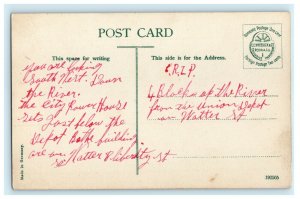 POST CARD
This space for writing
you are looking
South West. Down
the River.
the City Power House
sets Just below the
Depot Both building
are on Water & liberty St
This side is for the Address.
C.R.I.P.
4 Blocks up the River
from the Union Depot
on Water St
Domestic Postage One cent
Foreign Postage Two cents
Made in Germany.